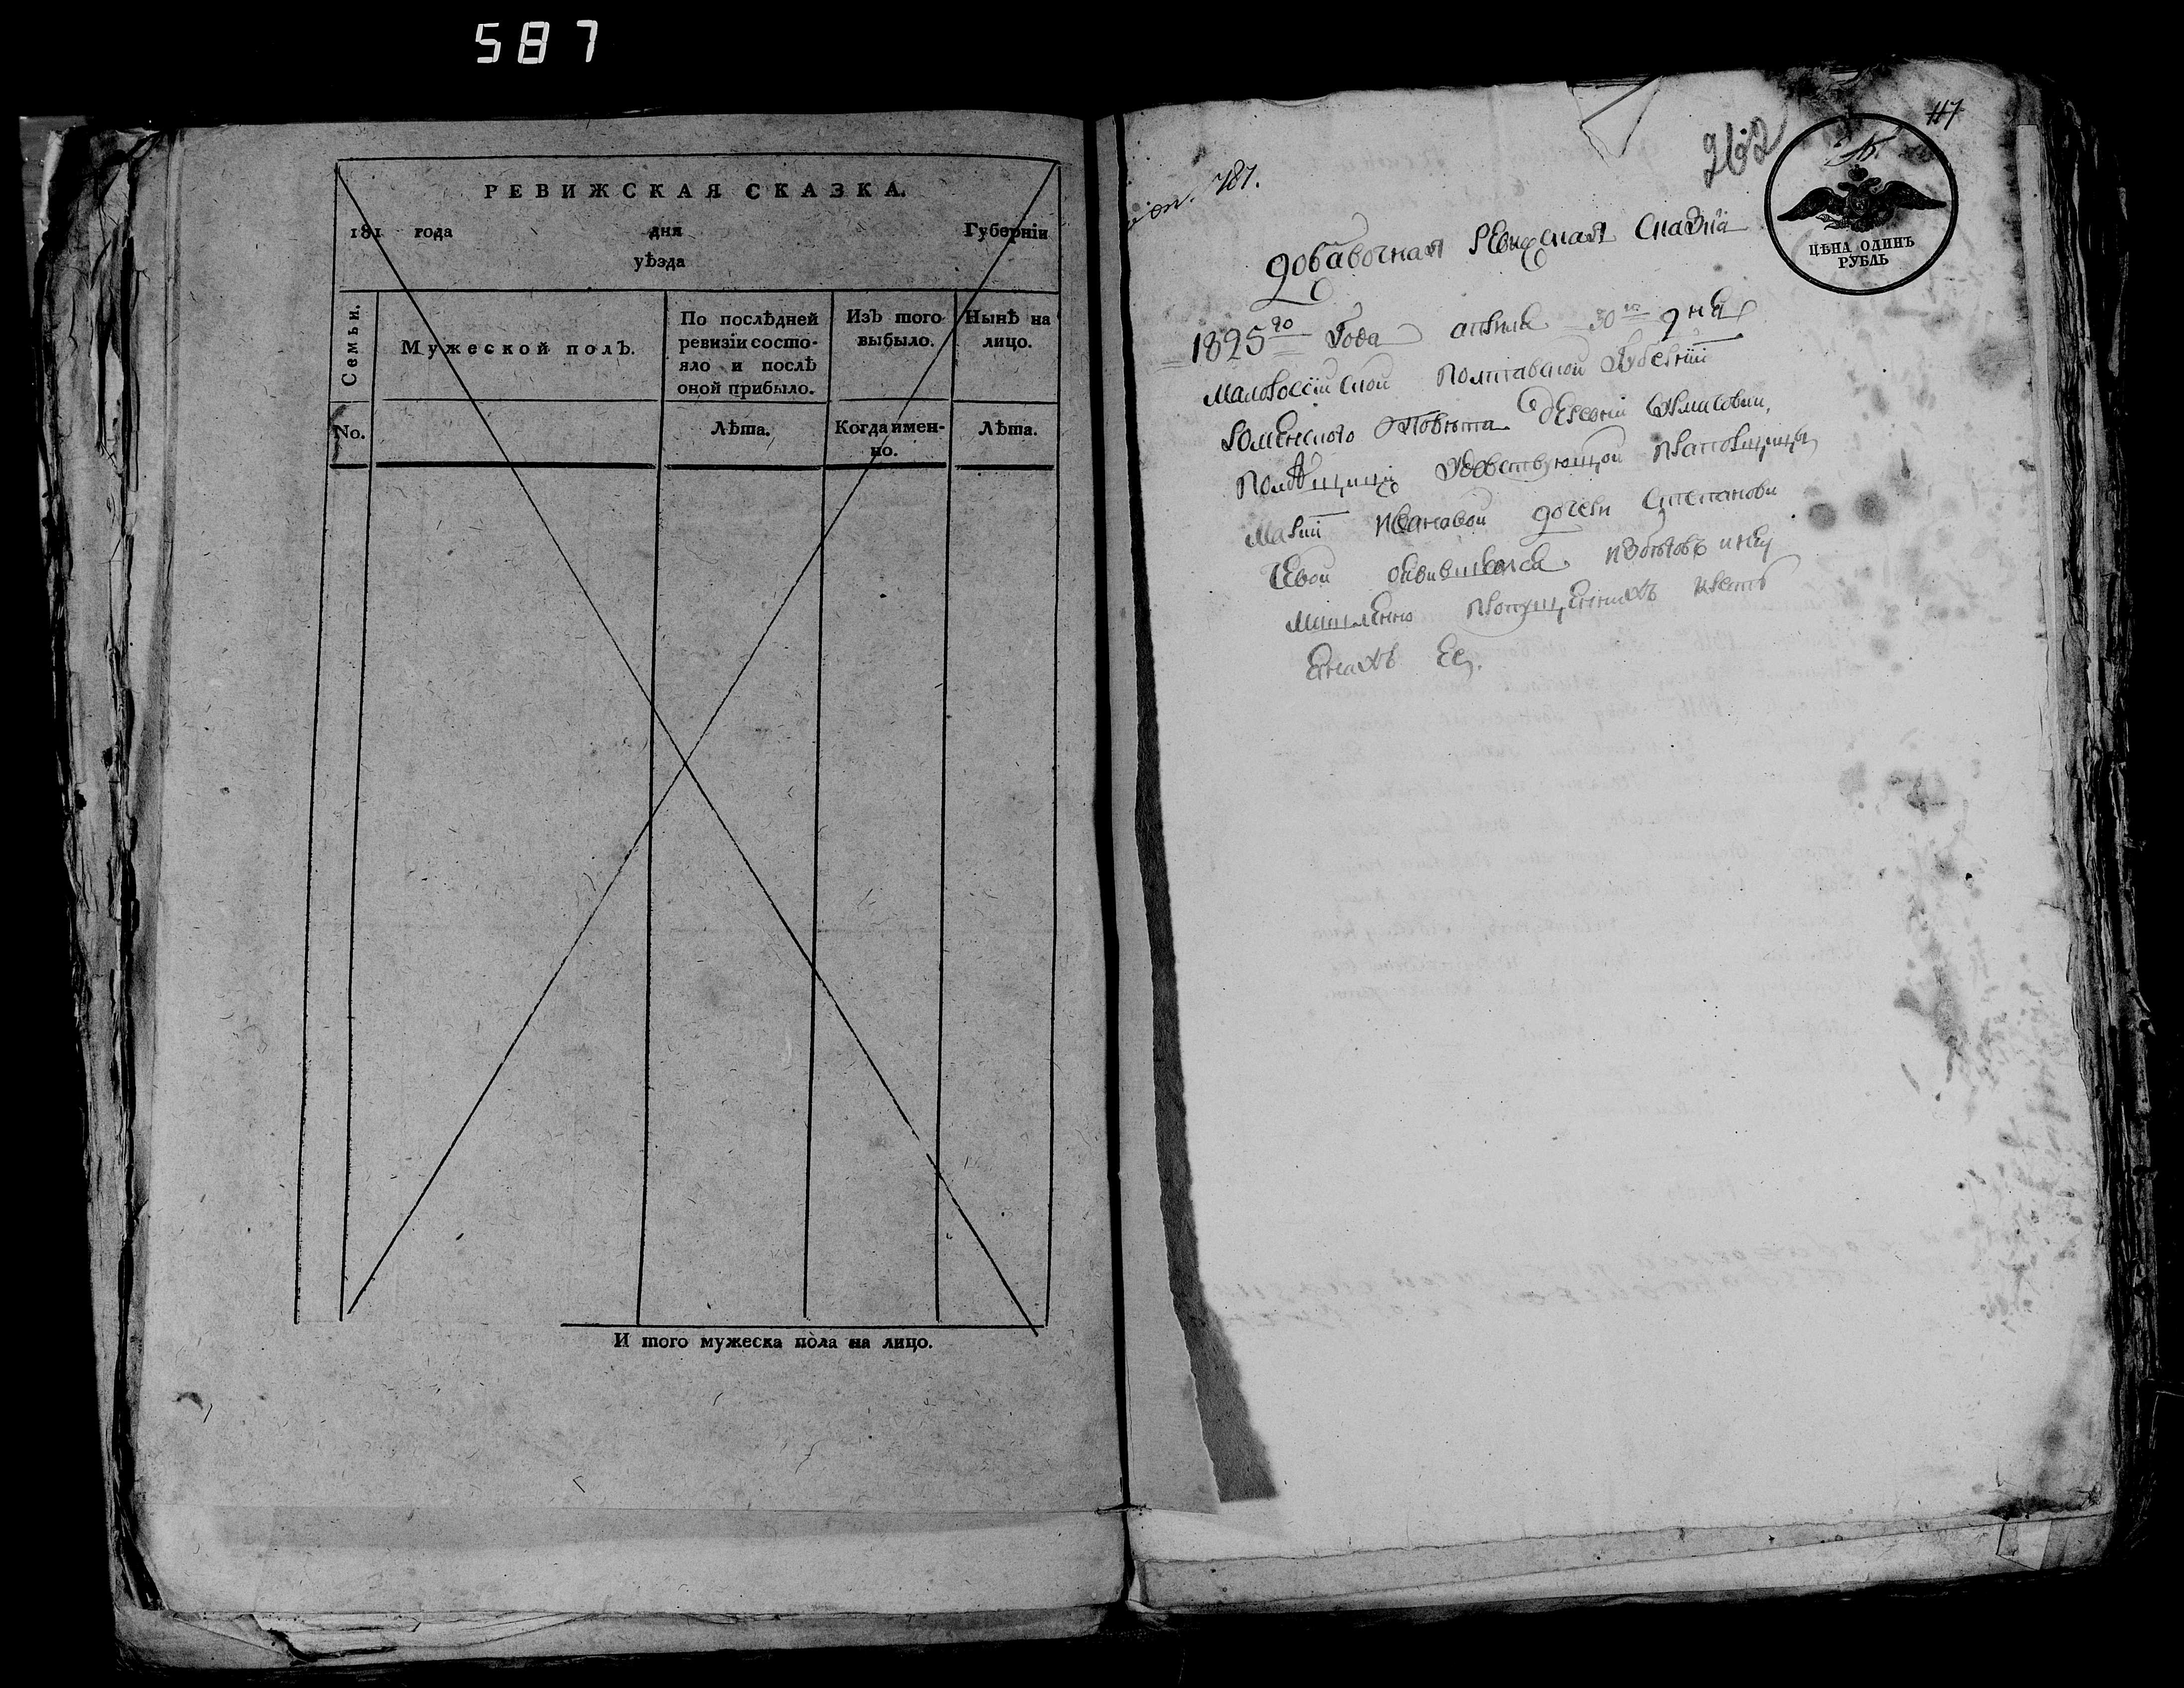 587
РЕВИЖСКАЯ СКАЗКА.
181 года дня Губерніи
уѣзда
Семьи.
Мужеской полъ.
По послѣдней ревизіи состо-
яло и послѣ оной прибыло.
Изъ того выбыло.
Нынѣ на лицо.
No.
Лѣта.
Когда имен-
но.
Лѣта.
И того мужеска пола на лицо.
787.
262
117
ЦѢНА ОДИНЪ
РУБЛЬ
Добавочная Ревижская Сказка
1825го Года апреля 30го дня
Малоросійской Полтавской Губерніи
Роменского Повета
Помѣщици Прапорщици
Маріи Ивановой дочери Степанови
чевой оказавшися изъ бѣговъ и неу
мишленно пропущеннихъ крестъ
янахъ Ея.